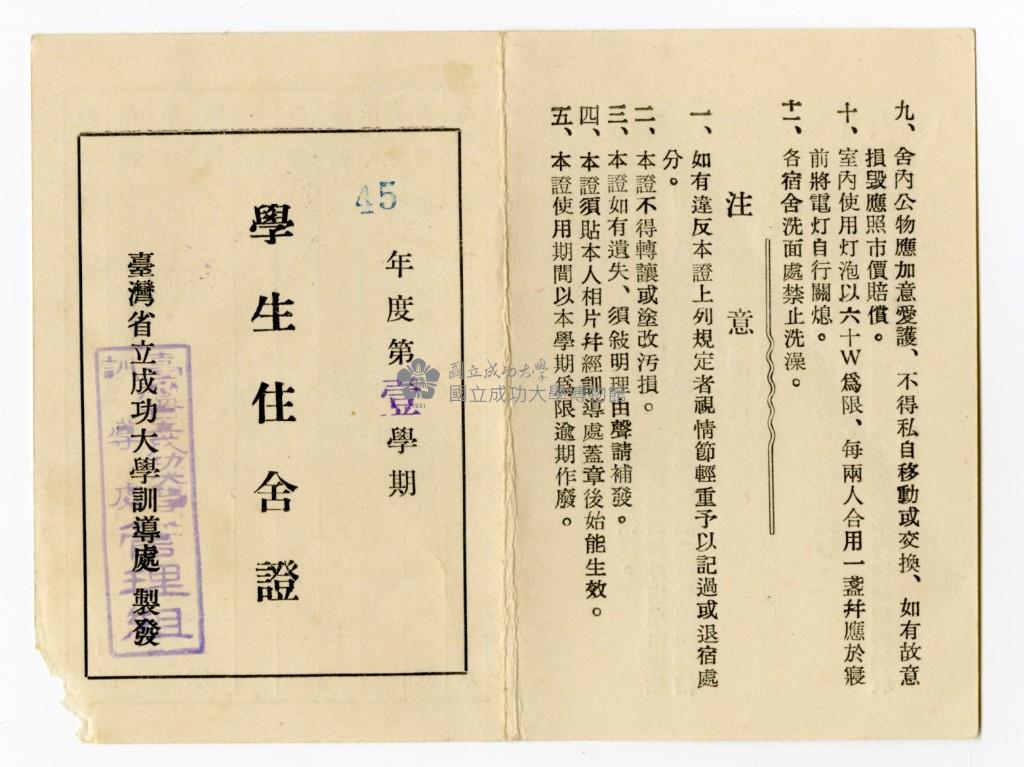 九、舍內公物應加意愛護、不得私自移動或交換、如有故意
損毀應照市價賠償。
十、室內使用灯泡以六十W爲限、每兩人合用一盞幷應於寢
前將電灯自行關熄。
十一、各宿舍洗面處禁止洗澡。
注意
一、如有違反本證上列規定者視情節輕重予以記過或退宿處
分。
二、本證不得轉讓或塗改汚損。
三、本證如有遺失、須敍明理由聲請補發。
四、本證須貼本人相片幷經訓導處蓋章後始能生效。
五、本證使用期間以本學期爲限逾期作廢。
45
年度第壹學期
學生住舍證
臺灣省立成功大學訓導處製發
臺灣省立成功大學
訓導處管理組
國立成功大學
國立成功大學博物館
1931